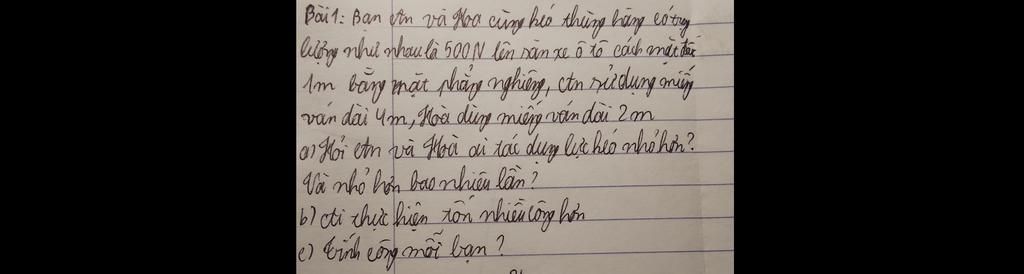 Bài 1: Bạn An và Hoa cùng kéo thùng hàng có trọng
lượng như nhau là 500N lên sàn xe ô tô cách mặt đất
1m bằng mặt phẳng nghiêng, An sử dụng miếng
ván dài 4m, Hoà dùng miếng ván dài 2m
a) Hỏi An và Hoà ai tác dụng lực kéo nhỏ hơn?
Và nhỏ hơn bao nhiêu lần?
b) Ai thực hiện tốn nhiều công hơn
c) Tính công mỗi bạn?